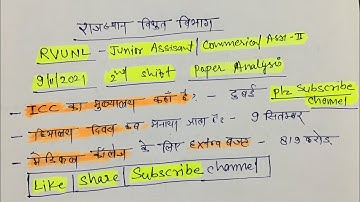 राजस्थान विधुत विभाग
RVUNL - Junior Assisant/Commercial Asst-II
9/11/2021 2nd shift Paper Analysis
- ICC का मुख्यालय कहाँ है? - दुबई Plz Subscribe Channel
- हिमालय दिवस कब मनाया जाता है? - 9 सितम्बर
- मेडिकल कॉलेज के लिए Extra बजट - 819 करोड़
Like | Share | Subscribe channel